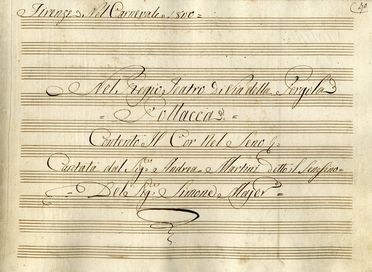 Firenze Nel Carnevale 1800
Nel Regio Teatro di Via della Pergola
Pollacca
Contento Il Cor Nel Seno
Cantata dal Sigr Andrea Martini detto il Senesino
Del Sigr Simone Mayer